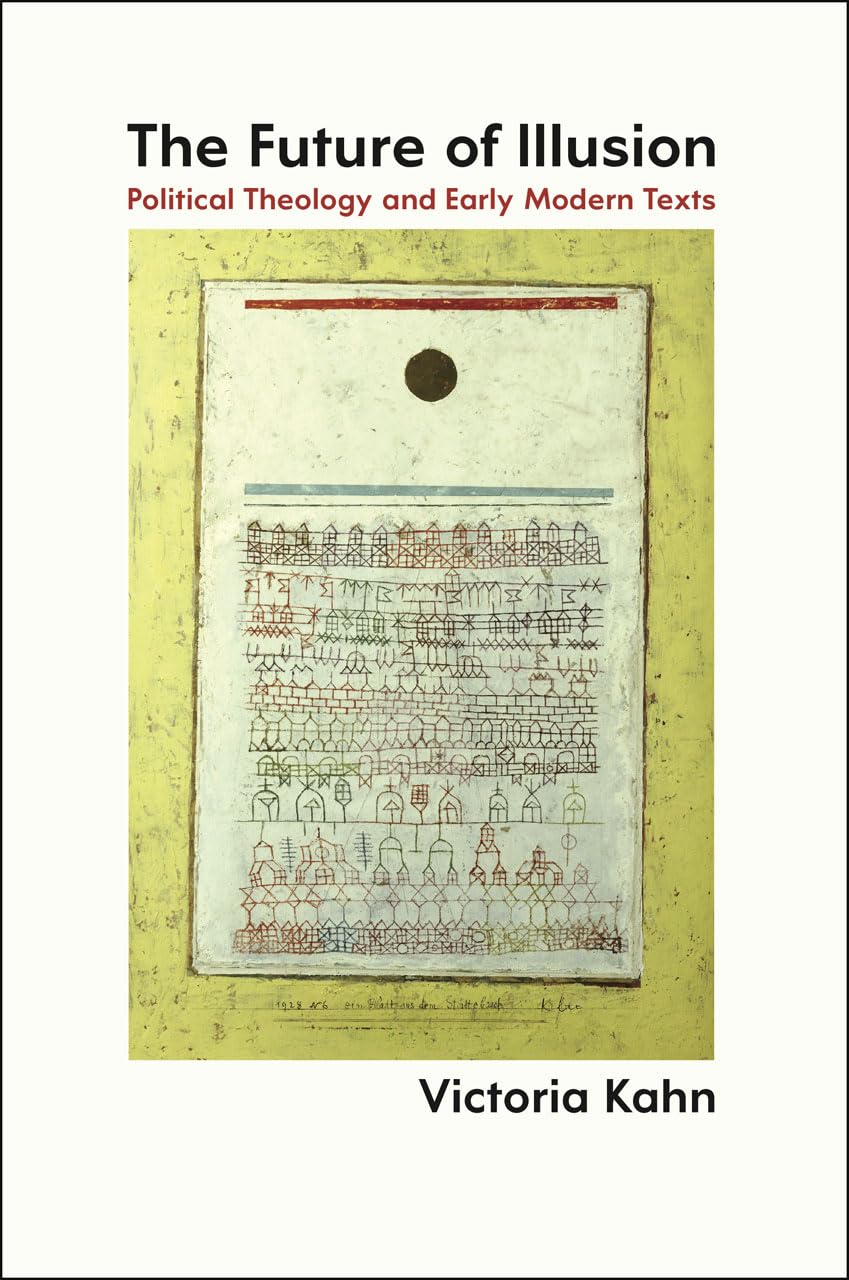 The Future of Illusion
Political Theology and Early Modern Texts
1928 N6 ein Blatt aus dem Städtebuch Klee
Victoria Kahn